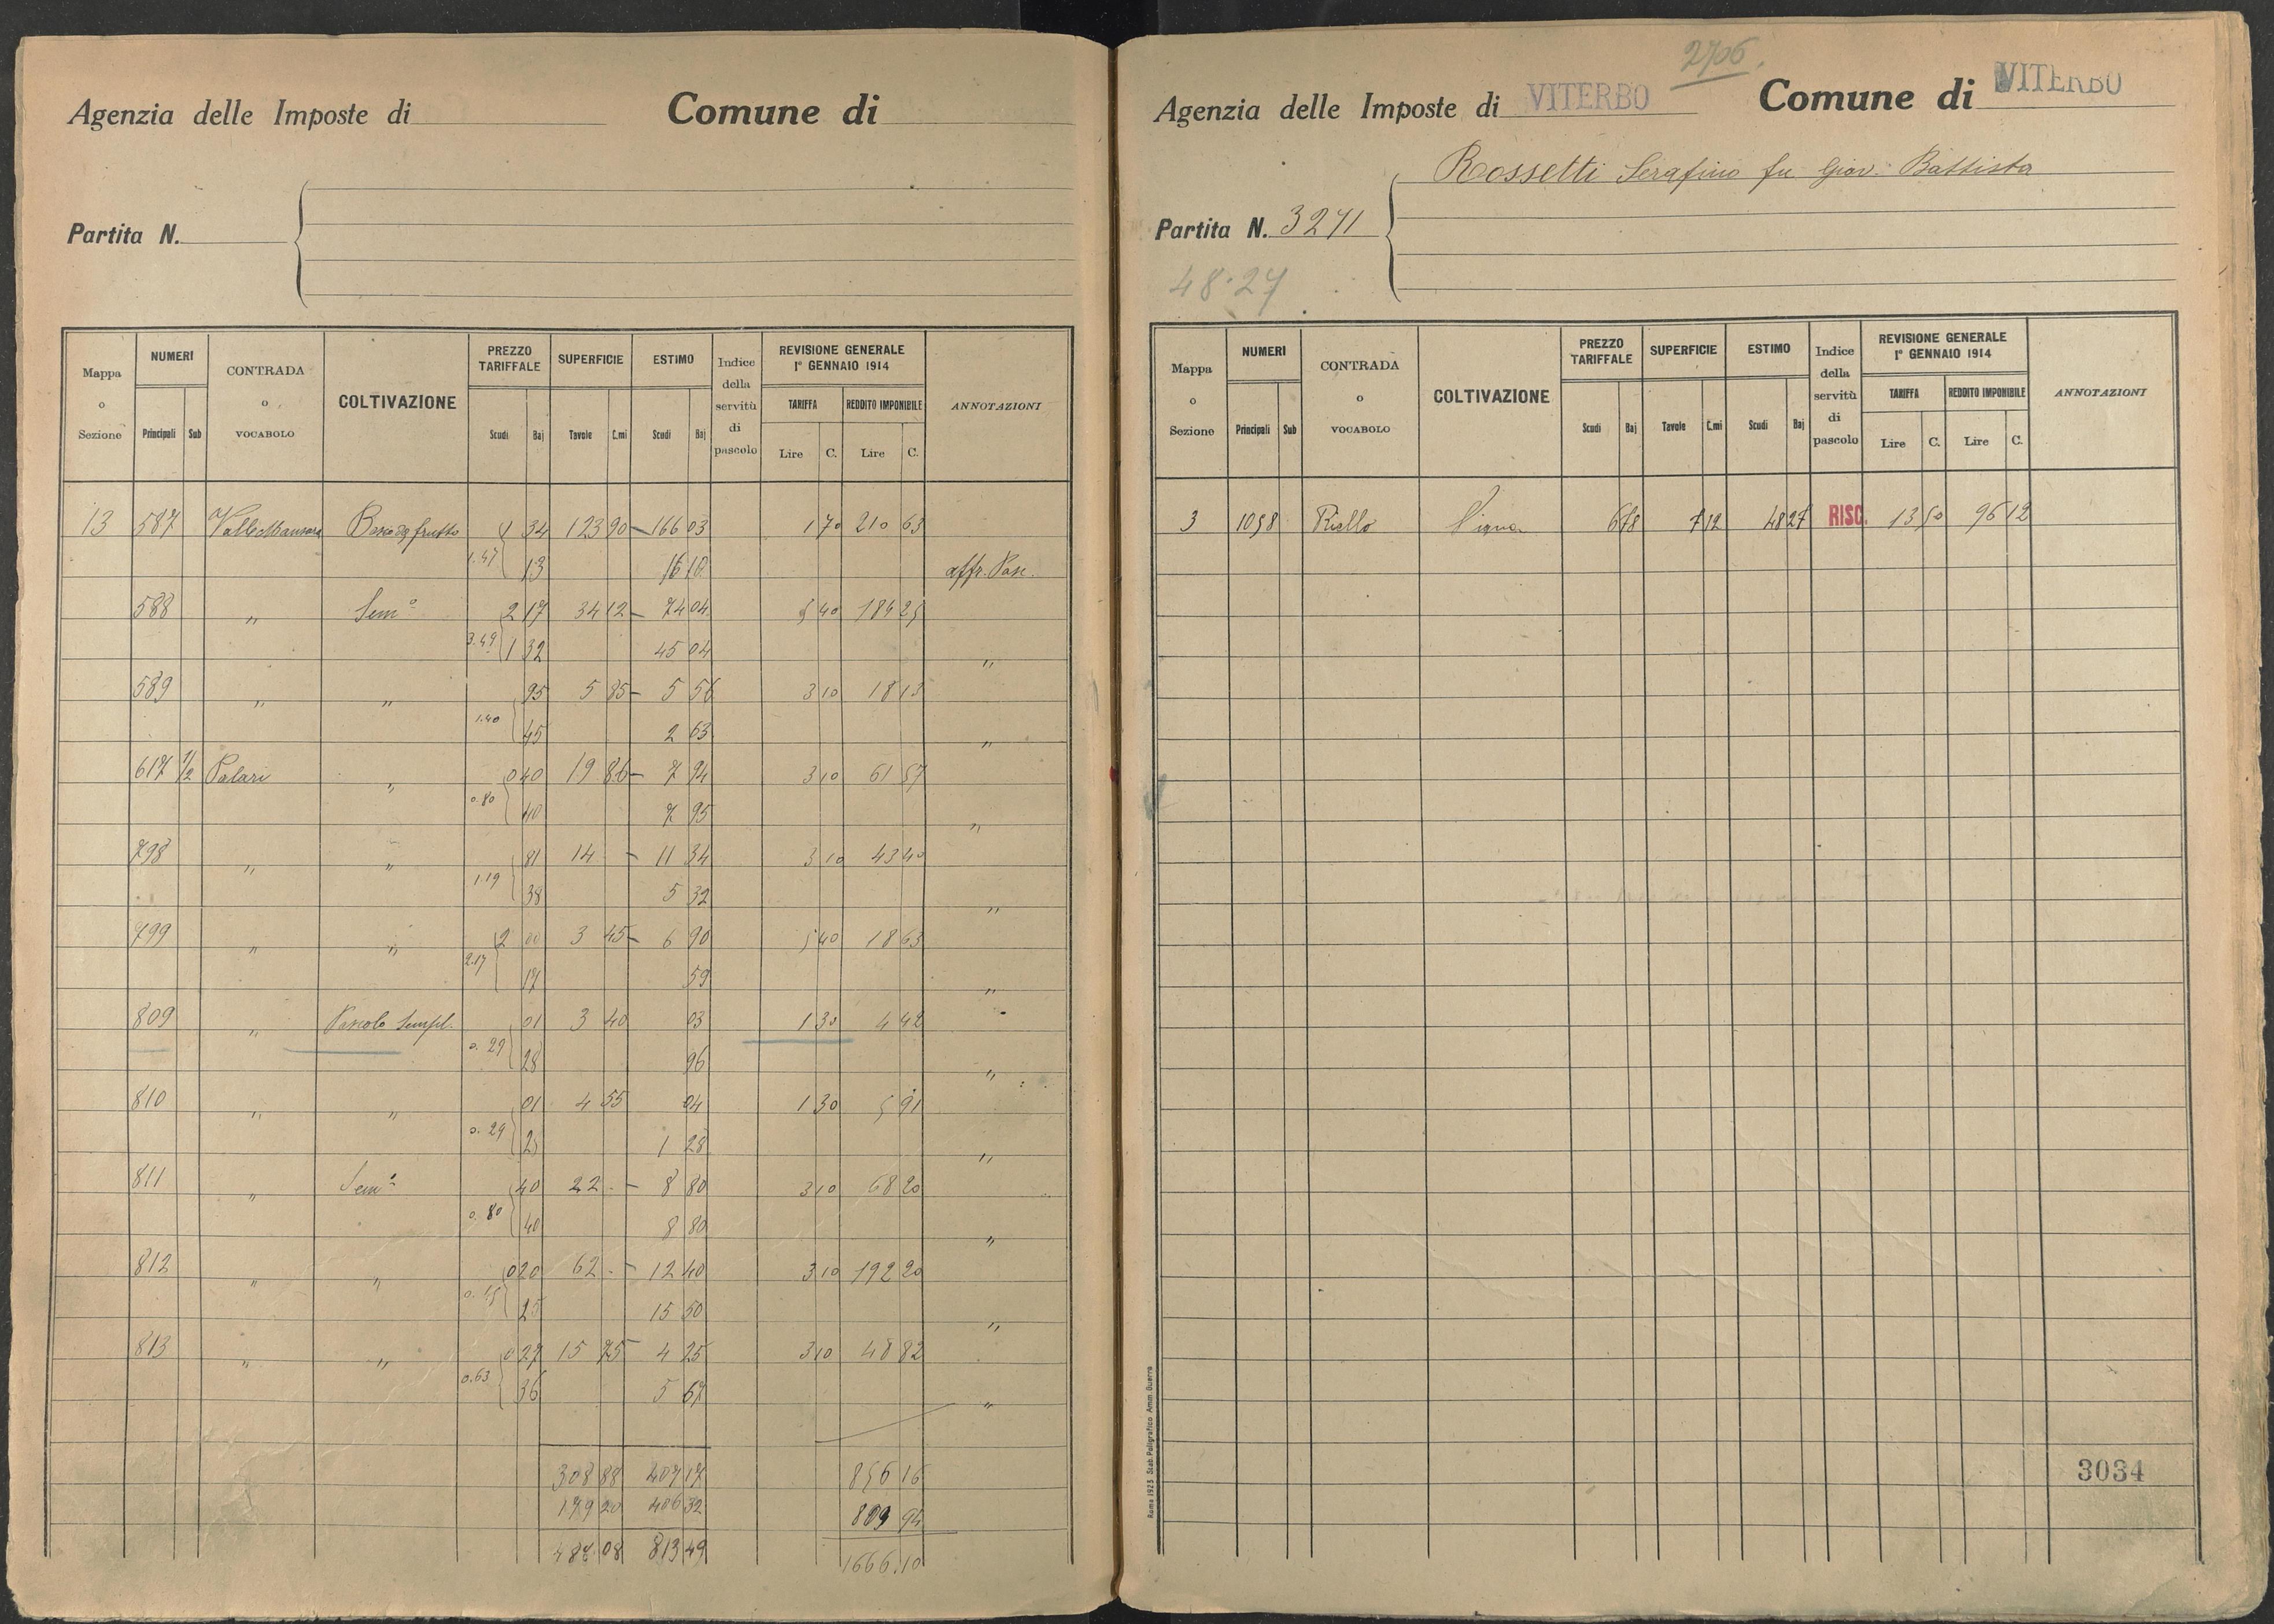 Agenzia delle Imposte di Comune di
Partita N.
Mappa o Sezione NUMERI Principali Sub CONTRADA o VOCABOLO COLTIVAZIONE PREZZO TARIFFALE Scudi Baj SUPERFICIE Tavole C.mi ESTIMO Scudi Baj Indice della servitù di pascolo REVISIONE GENERALE 1° GENNAIO 1914 TARIFFA Lire C. REDDITO IMPONIBILE Lire C. ANNOTAZIONI
13 587 frutto 1 34 123 90 — 166 03 1 70 210 63
1.47 13 16 10 affr. Pasc.
588 " Sem° 2 17 34 12 — 74 04 5 40 184 25
3.49 1 32 45 04 "
589 " " 95 5 85 — 5 56 3 10 18 13
1.40 45 2 63 "
617 1/2 Palari " 0 40 19 86 — 7 94 3 10 61 57
0.80 40 7 95 "
798 " " 81 14 — 11 34 3 10 43 40
1.19 38 5 32 "
799 " " 2 00 3 45 — 6 90 5 40 18 63
2.17 17 59 "
809 " Pascolo Sempl. 01 3 40 03 1 30 4 42
0.29 28 96 "
810 " " 01 4 55 04 1 30 5 91
0.29 28 1 28 "
811 " Sem° 40 22 — 8 80 3 10 68 20
0.80 40 8 80 "
812 " " 0 20 62 — 12 40 3 10 192 20
0.45 25 15 50 "
813 " " 0 27 15 75 4 25 3 10 48 82
0.63 36 5 67 "
308 88 407 17 856 16
179 20 406 32 809 94
487 08 813 49 1666.10
2706.
Agenzia delle Imposte di VITERBO Comune di VITERBO
Rossetti Serafino fu Giov. Battista
Partita N. 3271
48.27
Mappa o Sezione NUMERI Principali Sub CONTRADA o VOCABOLO COLTIVAZIONE PREZZO TARIFFALE Scudi Baj SUPERFICIE Tavole C.mi ESTIMO Scudi Baj Indice della servitù di pascolo REVISIONE GENERALE 1° GENNAIO 1914 TARIFFA Lire C. REDDITO IMPONIBILE Lire C. ANNOTAZIONI
3 1098 Riello Vigna 6 78 7 12 48 27 RISC. 13 50 96 12
3034
Roma 1923 Stab. Poligrafico Amm. Guerra